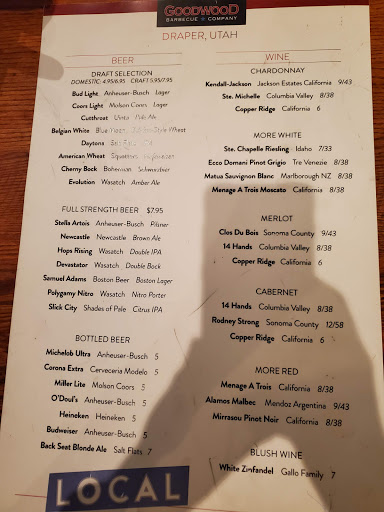 GOODWOOD
BARBECUE COMPANY
DRAPER, UTAH
BEER
DRAFT SELECTION
DOMESTIC 4.95/6.95 CRAFT 5.95/7.95
Bud Light Anheuser-Busch Lager
Coors Light Molson Coors Lager
Cutthroat Uinta Pale Ale
Belgian White Blue Moon Wheat
Daytona
American Wheat Squatters Hefeweizen
Cherny Bock Bohemian Schwarzbier
Evolution Wasatch Amber Ale
FULL STRENGTH BEER $7.95
Stella Artois Anheuser-Busch Pilsner
Newcastle Newcastle Brown Ale
Hops Rising Wasatch Double IPA
Devastator Wasatch Double Bock
Samuel Adams Boston Beer Boston Lager
Polygamy Nitro Wasatch Nitro Porter
Slick City Shades of Pale Citrus IPA
BOTTLED BEER
Michelob Ultra Anheuser-Busch 5
Corona Extra Cerveceria Modelo 5
Miller Lite Molson Coors 5
O'Doul's Anheuser-Busch 5
Heineken Heineken 5
Budweiser Anheuser-Busch 5
Back Seat Blonde Ale Salt Flats 7
LOCAL
WINE
CHARDONNAY
Kendall-Jackson Jackson Estates California 9/43
Ste. Michelle Columbia Valley 8/38
Copper Ridge California 6
MORE WHITE
Ste. Chapelle Riesling Idaho 7/33
Ecco Domani Pinot Grigio Tre Venezie 8/38
Matua Sauvignon Blanc Marlborough NZ 8/38
Menage A Trois Moscato California 8/38
MERLOT
Clos Du Bois Sonoma County 9/43
14 Hands Columbia Valley 8/38
Copper Ridge California 6
CABERNET
14 Hands Columbia Valley 8/38
Rodney Strong Sonoma County 12/58
Copper Ridge California 6
MORE RED
Menage A Trois California 8/38
Alamos Malbec Mendoz Argentina 9/43
Mirrasou Pinot Noir California 8/38
BLUSH WINE
White Zinfandel Gallo Family 7